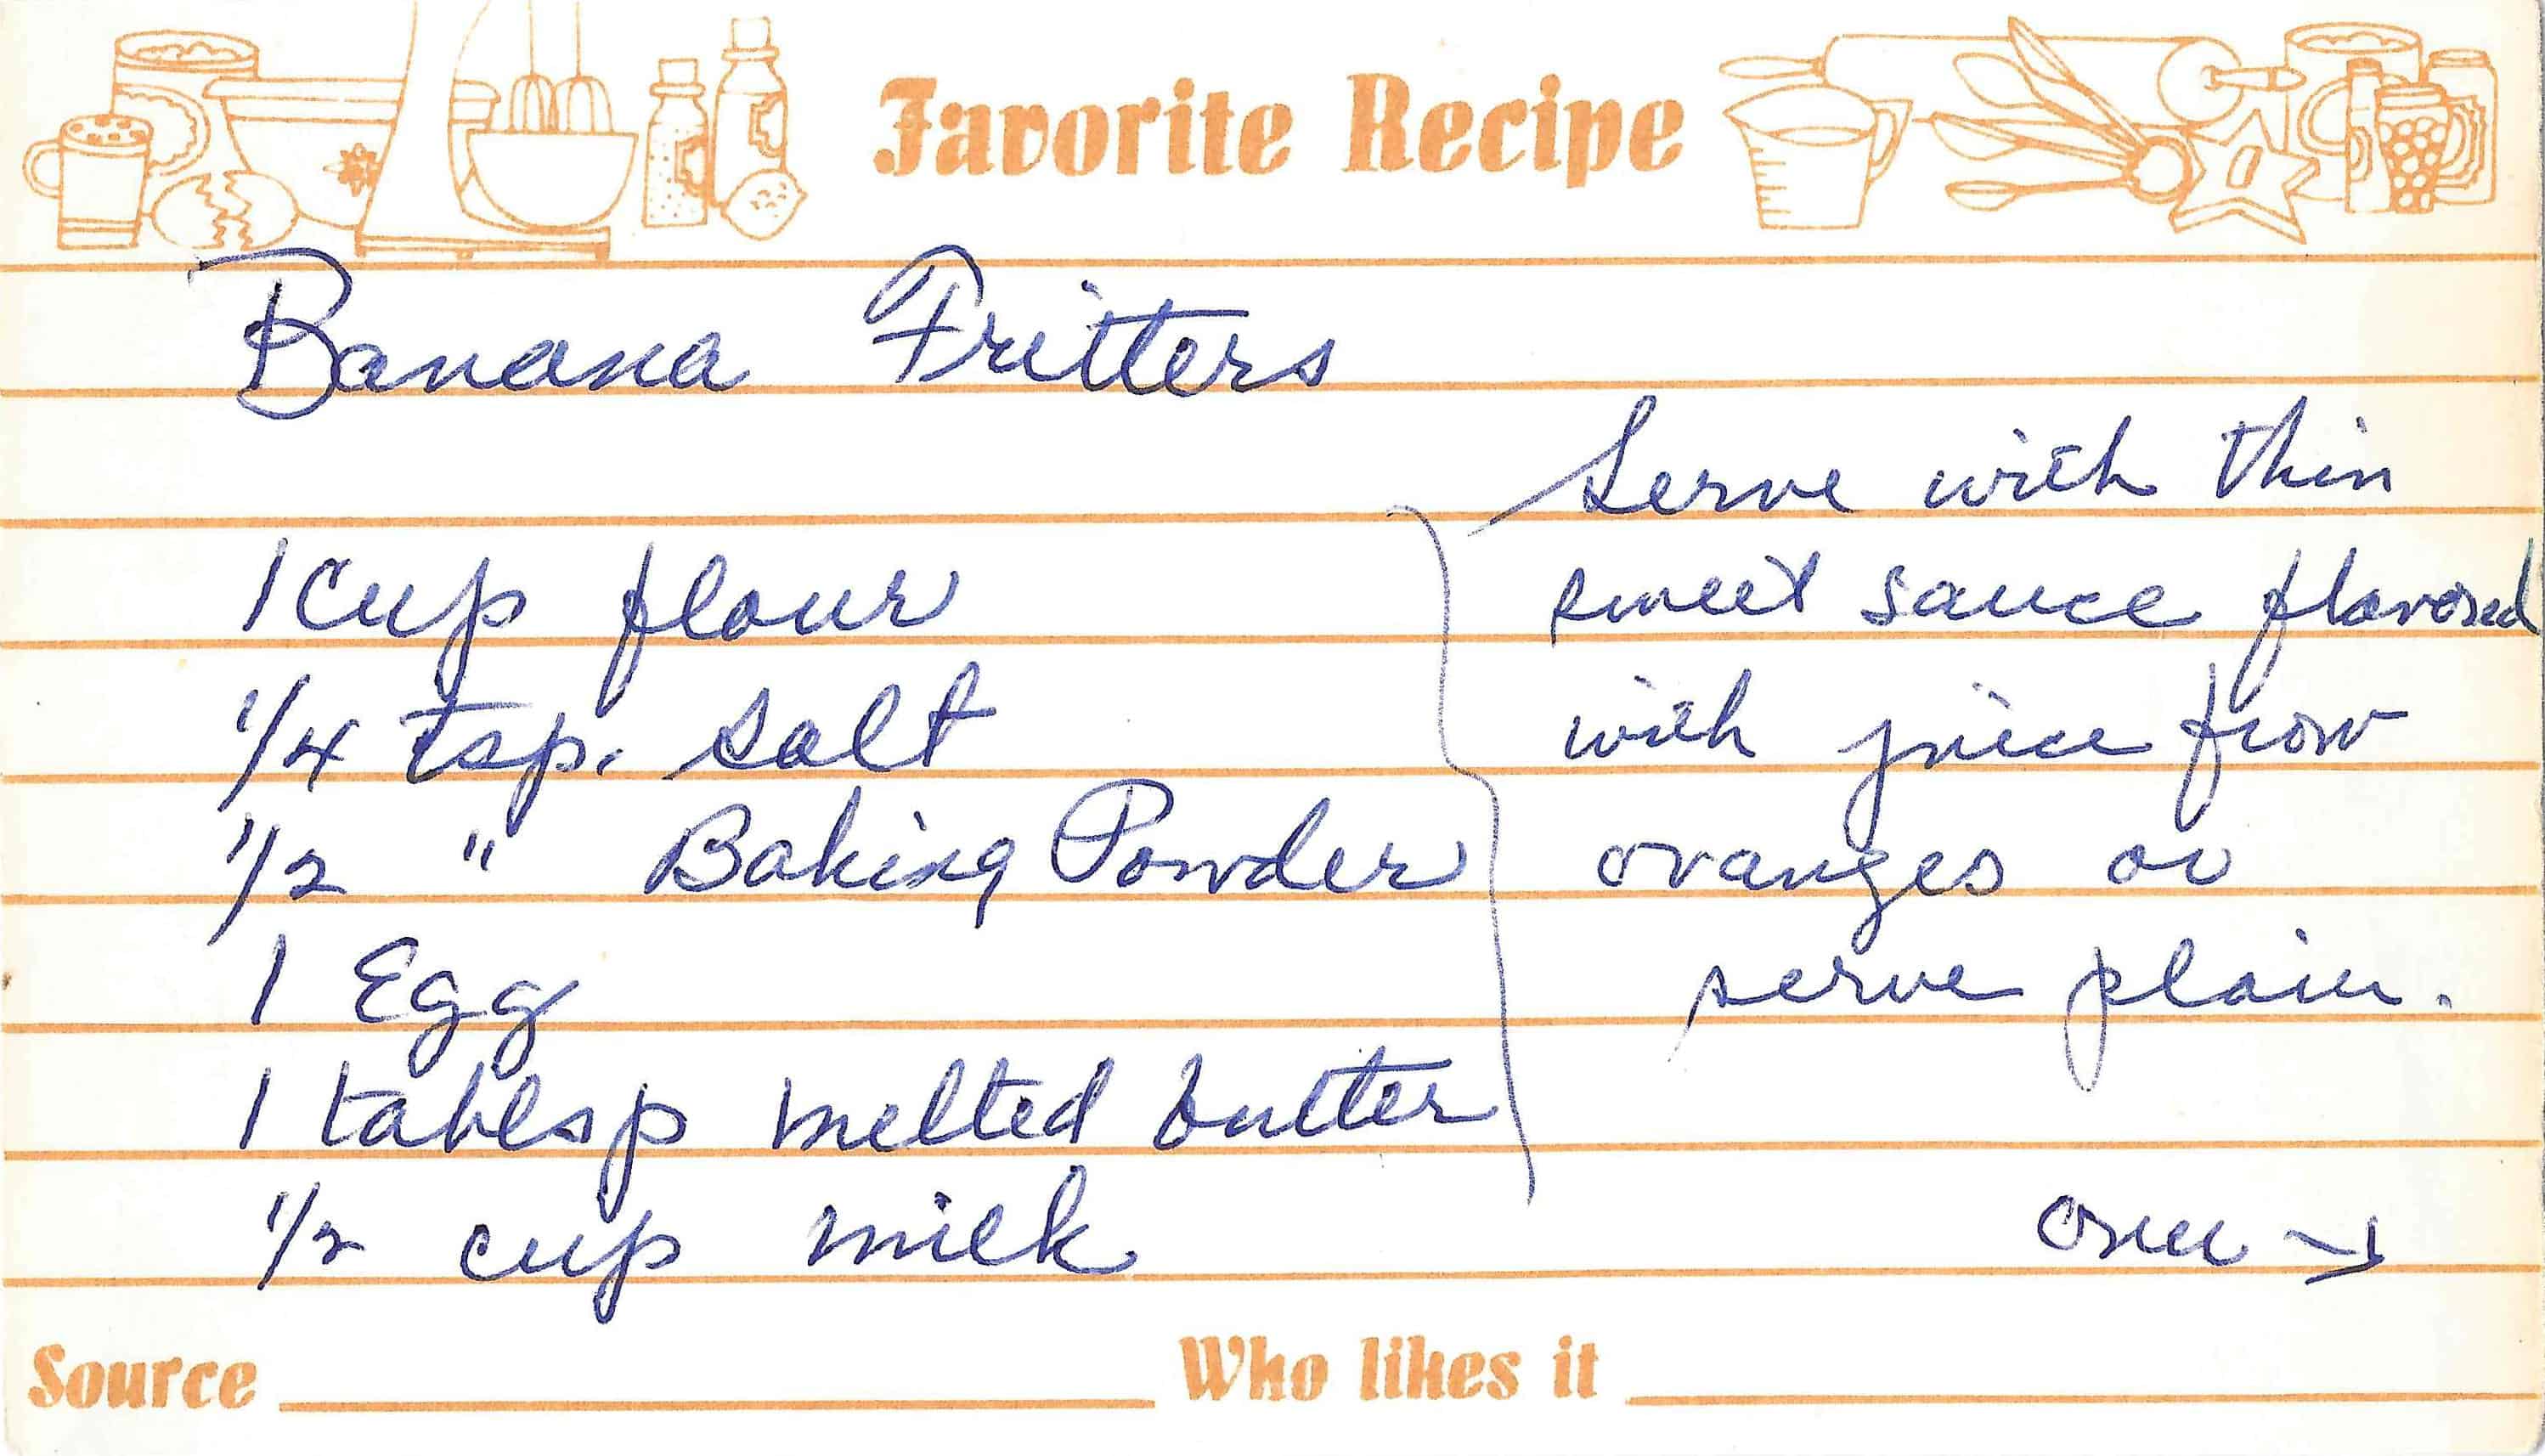 Favorite Recipe
Banana Fritters
1 cup flour
1/4 tsp. salt
1/2 " Baking Powder
1 Egg
1 tablsp melted butter
1/2 cup milk
Serve with thin
sweet sauce flavored
with juice from
oranges or
serve plain.
over →
Source
Who likes it